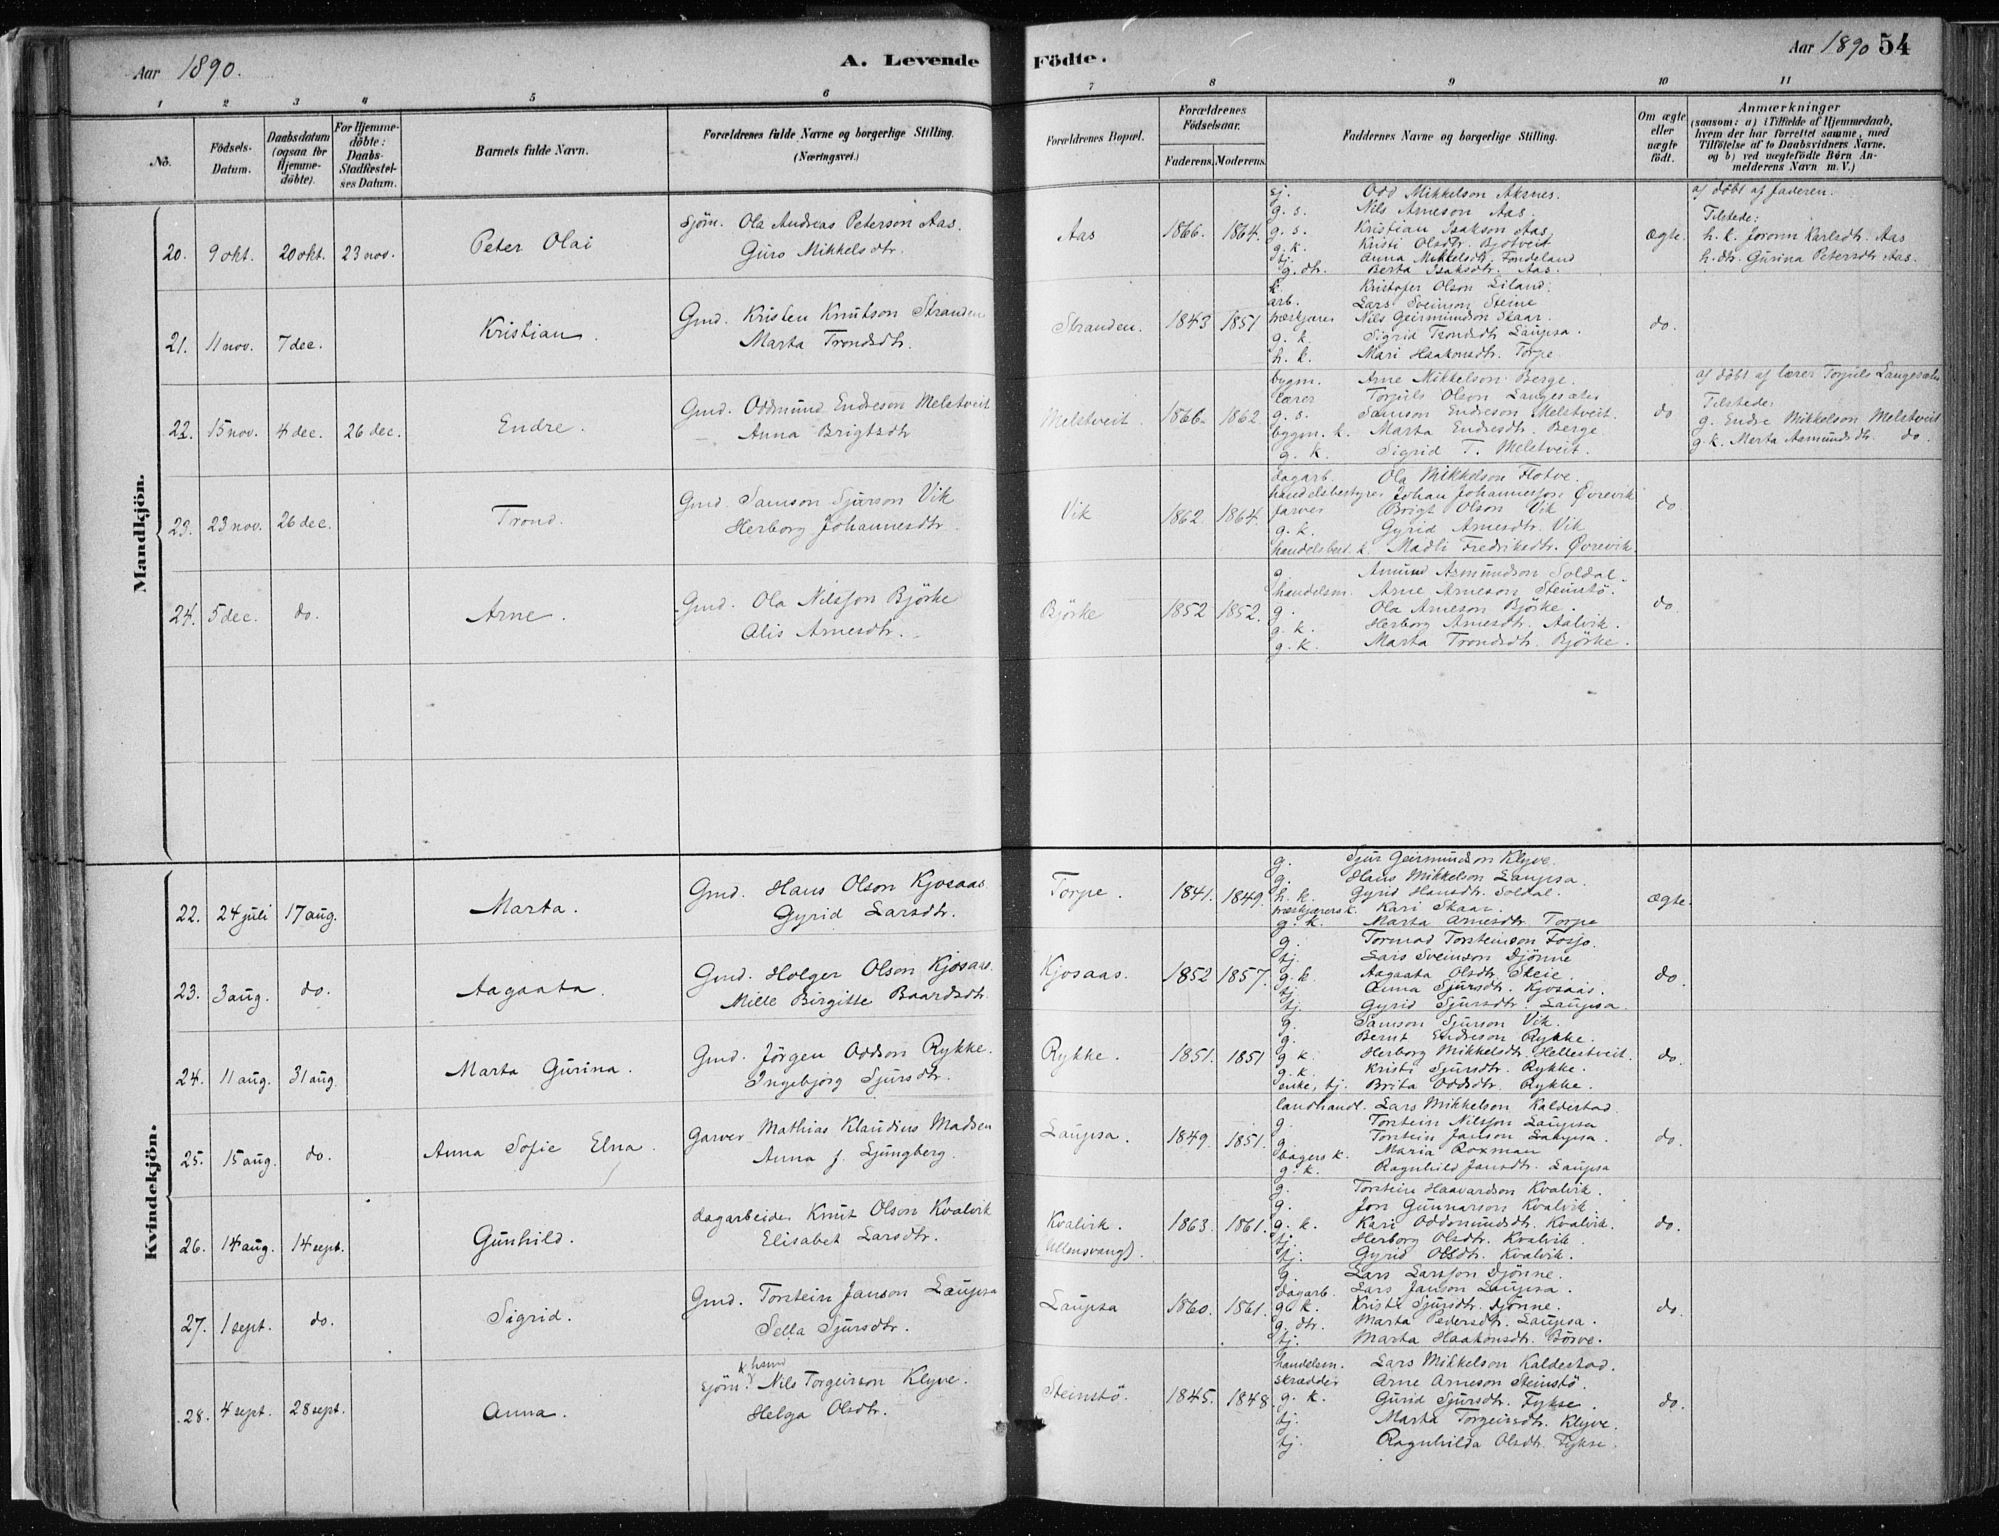 Aar 1890.
A. Levende Födte.
Aar 1890 54
1 2 3 4 5 6 7 8 9 10 11
No.
Födsels-Datum.
Daabsdatum (ogsaa for Hjemme-döbte).
For Hjemme-döbte: Daabs-Stadfæstel-ses Datum.
Barnets fulde Navn.
Forældrenes fulde Navne og borgerlige Stilling. (Næringsvei.)
Forældrenes Bopæl.
Forældrenes Födselsaar.
Faderens. Moderens.
Faddernes Navne og borgerlige Stilling.
Om ægte eller uægte födt.
Anmærkninger
(saasom: a) i Tilfælde af Hjemmedaab, hvem der har forrettet samme, med Tilföielse af to Daabsvidners Navne, og b) ved uægtefödte Börn An-melderens Navn m. V.)
Mandkjön.
20. 9 okt. 20 okt. 23 nov. Peter Olai
sjöm. Ola Andreas Peterson Aas.
Guro Mikkelsdtr.
Aas 1866. 1864.
sj. Odd Mikkelson Aksnes.
g. s. Nils Arneson Aas.
g. s. Kristian Isakson Aas.
g. k. Kristi Olsdtr. Bjotveit
tj. Anna Mikkelsdtr. Fondeland
g. dtr. Berta Isaksdtr. Aas.
ægte.
af döbt af faderen.
Tilstede:
h. k. Joronn Karlsdtr. Aas
h. dtr. Gurina Petersdtr. Aas.
21. 11 nov. 7 dec. Kristian.
Gmd. Kristen Knutson Stranden
Marta Trondsdtr.
Stranden. 1843 1851
k. Kristofer Olson Liland.
arb. Lars Sveinson Steine
præskjarer Nils Geirmundson Skaar.
g. k. Sigrid Trondsdtr Laupsa.
h. k. Mari Haakonsdtr. Torpe
do.
22. 15 nov. 4 dec. 26 dec. Endre.
Gmd. Oddmund Endreson Melstveit
Anna Brigtsdtr
Melstveit. 1866. 1862.
bygm. Arne Mikkelson Berge.
lærer Torjuls Olson Langesæter
g. s. Samson Endreson Melstveit.
bygm. k. Marta Endresdtr. Berge
g. k. Sigrid T. Melstveit.
do
af döbt af lærer Torjuls Langesæter
Tilstede:
g. Endre Mikkelson Melstveit
g. k. Marta Asmundsdtr. do.
23. 23 nov. 26 dec. Trond.
Gmd Samson Sjurson Vik
Herborg Johannesdtr.
Vik 1862. 1864.
dagarb. Ola Mikkelson Flotve.
handelsbestyrer Johan Johannesson Övrevik
farver Brigt Olson Vik
g. k. Gyrid Arnesdtr. Vik
handelsbest. k. Madli Fredriksdtr. Övrevik.
do
24. 5 dec. do. Arne.
Gmd. Ola Nilsson Björke
Alis Arnesdtr.
Björke 1852 1852.
g. Amund Asmundson Soldal.
handelsm. Arne Arneson Steinstö.
g. Ola Arneson Björke.
g. k. Herborg Arnesdtr. Aalvik.
g. k. Marta Trondsdtr. Björke.
do
Kvindekjön.
22. 24 juli 17 aug. Marta.
Gmd. Hans Olson Kjosaas
Gyrid Larsdtr.
Torpe. 1841. 1849.
g. Sjur Geirmundson Klyve.
g. Hans Mikkelson Laupsa.
h. k. Gyrid Hansdtr. Soldal.
præskjærers k. Kari Skaar.
g. k. Marta Arnesdtr. Torpe
ægte.
23. 3 aug. do. Aagaata.
Gmd. Holger Olson Kjosaas.
Mille Birgitte Baardsdtr.
Kjosaas. 1852 1857.
g. Tormod Torsteinson Fosjo.
tj. Lars Sveinson Djönne
g. k Aagaata Olsdtr. Skeie.
tj. Anna Sjursdtr. Kjosaas.
tj. Gyrid Sjursdtr. Laupsa
do.
24. 11 aug. 31 aug. Marta Gurina.
Gmd. Jörgen Oddson Rykke.
Ingebjörg Sjursdtr.
Rykke. 1851. 1851
g. Samson Sjurson Vik.
g. Bernt Endreson Rykke.
g. k. Herborg Mikkelsdtr. Hellestveit.
g. k. Kristi Sjursdtr. Rykke.
enke, tj. Brita Oddsdtr. Rykke.
do.
25. 15 aug. do. Anna Sofie Elna.
Garver Mathias Klaudius Madsen
Anna J. Ljungberg.
Laupsa. 1849. 1851.
landhandl. Lars Mikkelson Kaldestad.
g. Torstein Nilsson Laupsa
g. Torstein Janson Laupsa.
bagers k. Maria Roxman
g. k. Ragnhild Jansdtr. Laupsa
do.
26. 14 aug. 14 sept. Gunhild.
dagarbeider Knut Olson Kvalvik
Elisabet Larsdtr.
Kvalvik. (Ullensvang). 1863. 1861.
g. Torstein Haavardson Kvalvik.
g. Jon Gunnarson Kvalvik.
g. k. Kari Oddmundsdtr. Kvalvik.
tj. Herborg Olsdtr. Kvalvik.
tj. Gyrid Olsdtr. Kvalvik.
do.
27. 1 sept. do. Sigrid.
Gmd. Torstein Janson Laupsa
Sella Sjursdtr.
Laupsa 1860. 1861.
g. Lars Larsson Djönne.
dagarb. Lars Janson Laupsa.
g. k. Kristi Sjursdtr. Djönne.
g. dtr. Marta Pedersdtr. Laupsa.
tj. Marta Haakonsdtr. Börve.
do.
28. 4 sept. 28 sept. Anna.
sjöm. & husmd Nils Torgeirson Klyve.
Helga Olsdtr.
Steinstö. 1845. 1848.
handelsm. Lars Mikkelson Kaldestad.
skrædder Arne Arneson Steinstö.
g. k. Gurid Sjursdtr. Fykse.
tj. Marta Torgeirsdtr. Klyve.
tj. Ragnhilda Olsdtr. Fykse.
do.